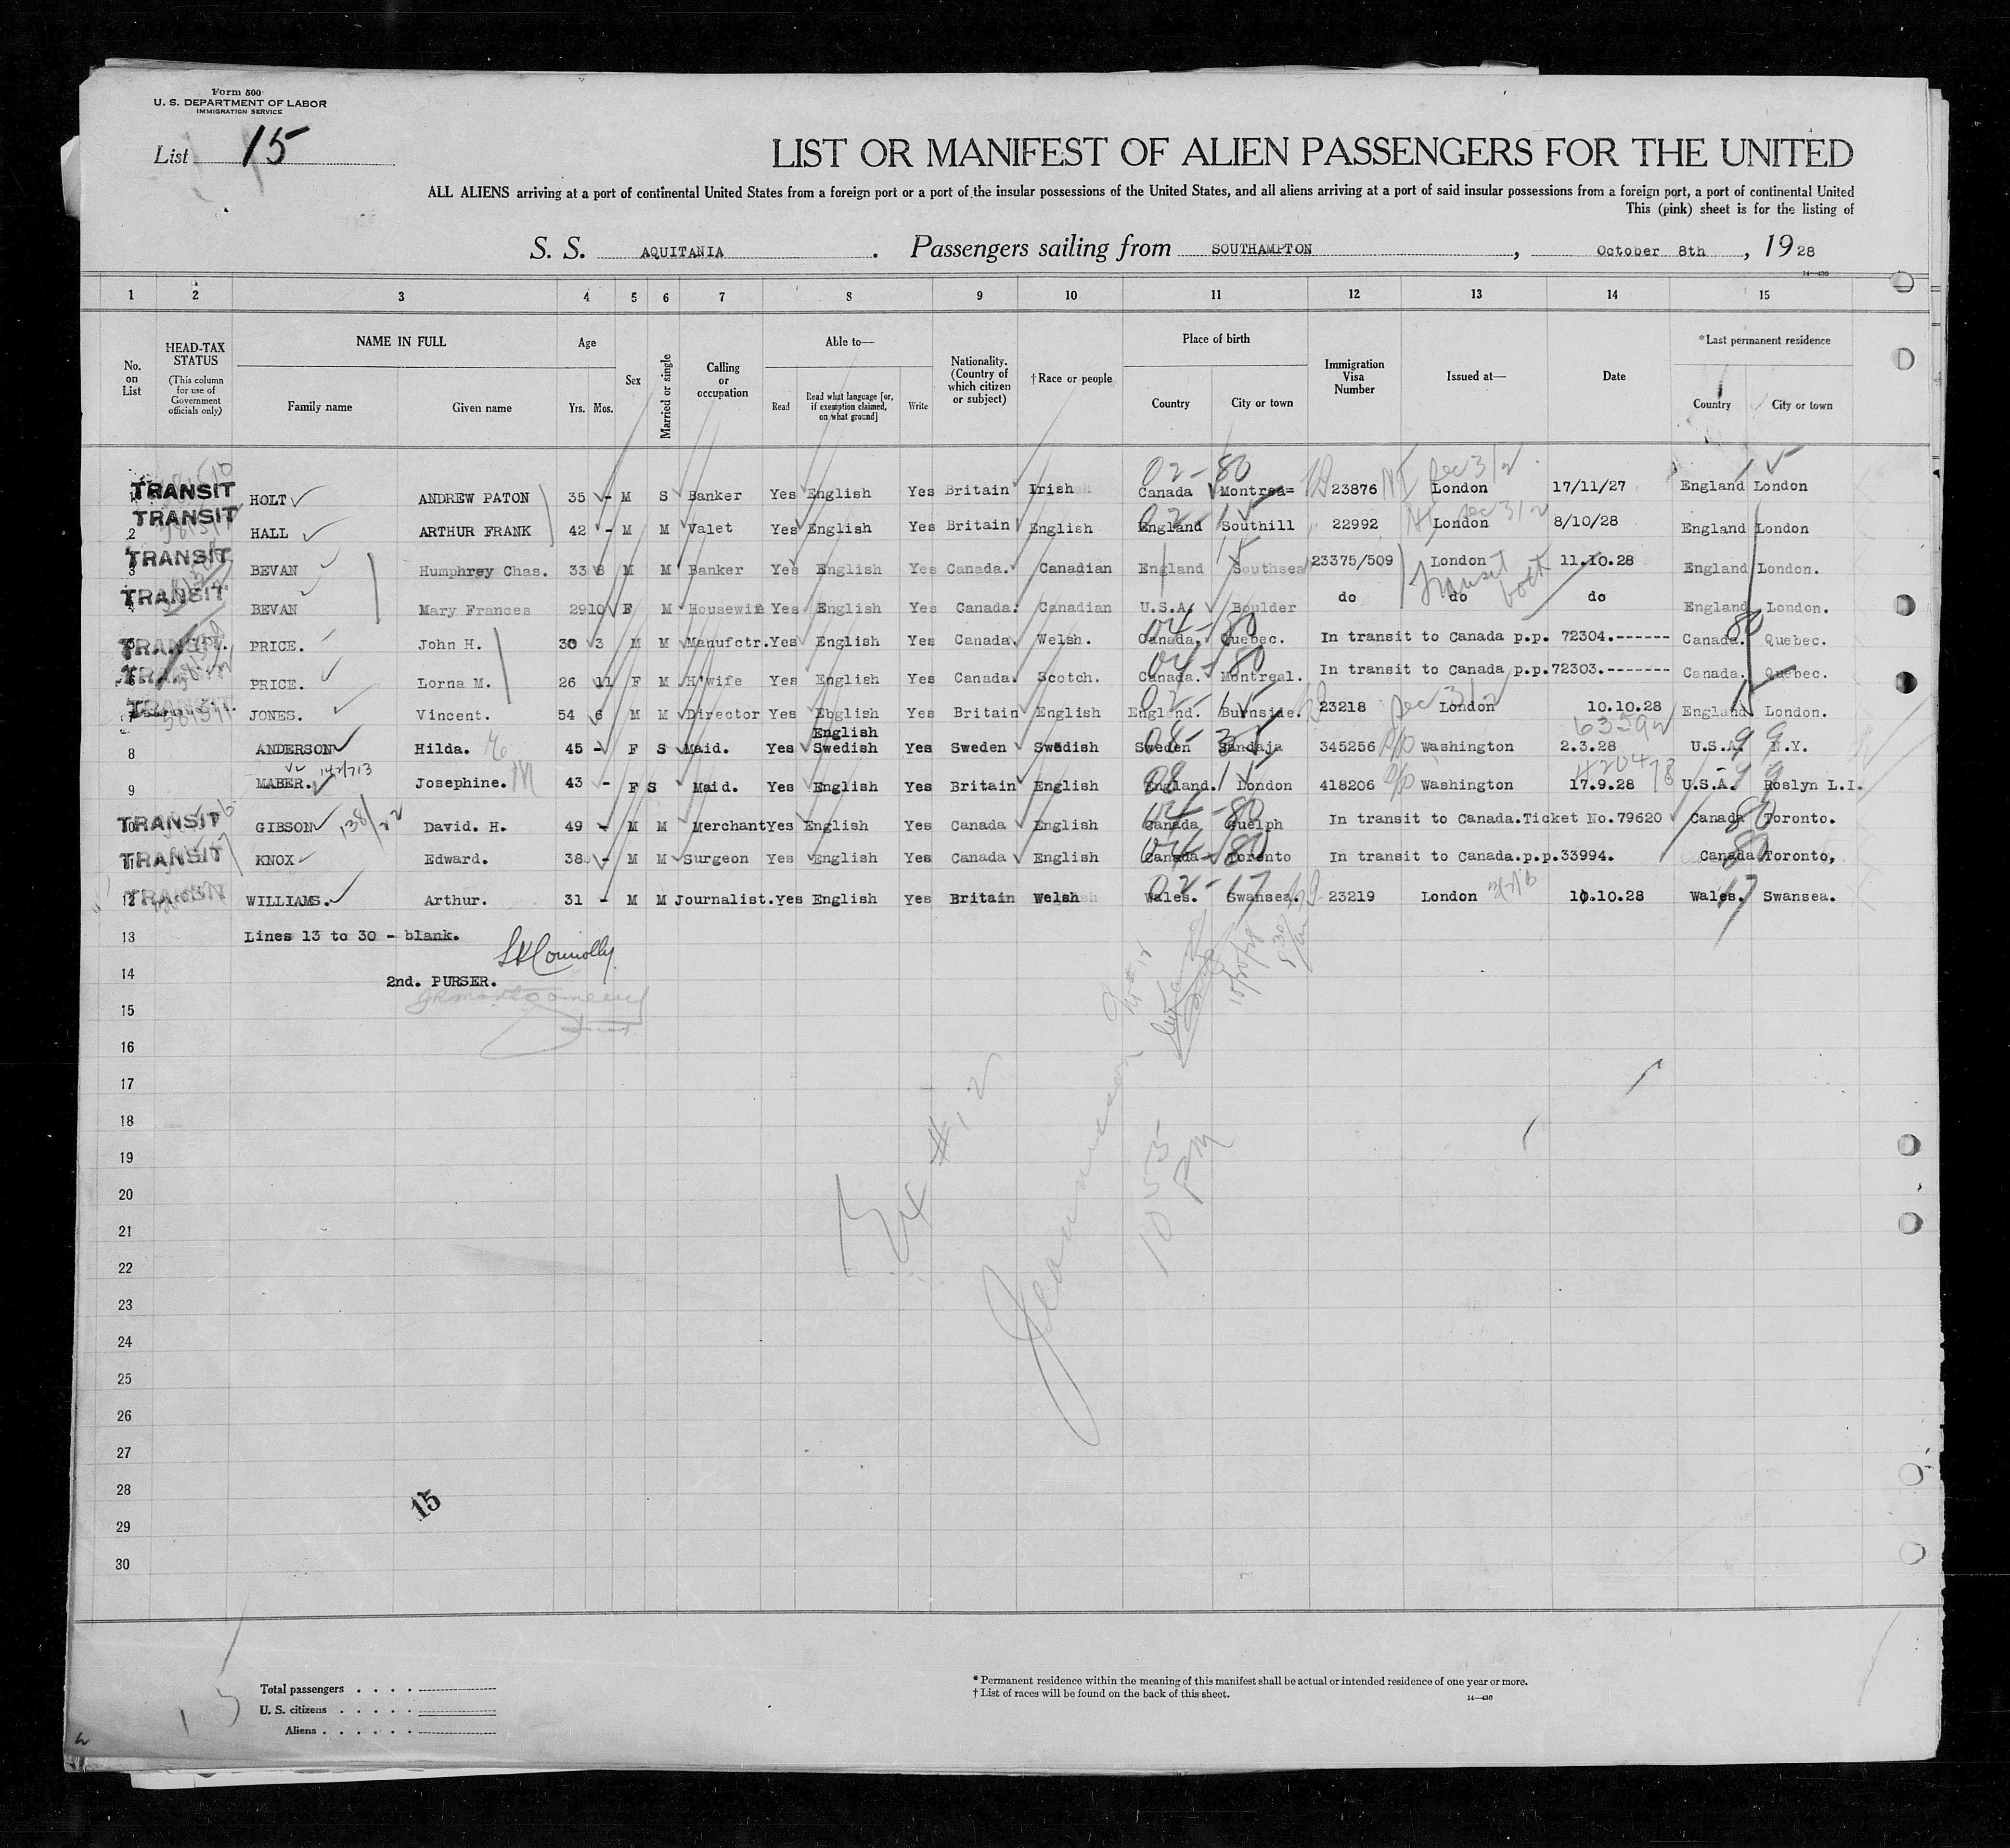 Form 500
U. S. DEPARTMENT OF LABOR
IMMIGRATION SERVICE
List 15
LIST OR MANIFEST OF ALIEN PASSENGERS FOR THE UNITED
ALL ALIENS arriving at a port of continental United States from a foreign port or a port of the insular possessions of the United States, and all aliens arriving at a port of said insular possessions from a foreign port, a port of continental United
This (pink) sheet is for the listing of
S. S. AQUITANIA . Passengers sailing from SOUTHAMPTON , October 8th , 19 28
14—430
1 2 3 4 5 6 7 8 9 10 11 12 13 14 15
No. on List
HEAD-TAX STATUS (This column for use of Government officials only)
NAME IN FULL
Family name Given name
Age
Yrs. Mos.
Sex
Married or single
Calling or occupation
Able to—
Read Read what language [or, if exemption claimed, on what ground] Write
Nationality. (Country of which citizen or subject)
†Race or people
Place of birth
Country City or town
Immigration Visa Number
Issued at—
Date
*Last permanent residence
Country City or town
02-80
1 TRANSIT HOLT ANDREW PATON 35 - M S Banker Yes English Yes Britain Irish Canada Montrea= 23876 London 17/11/27 England London
2 TRANSIT HALL ARTHUR FRANK 42 - M M Valet Yes English Yes Britain English England Southill 22992 London 8/10/28 England London
3 TRANSIT BEVAN Humphrey Chas. 33 8 M M Banker Yes English Yes Canada. Canadian England Southsea 23375/509 London 11.10.28 England London.
Transit both
4 TRANSIT BEVAN Mary Frances 29 10 F M Housewife Yes English Yes Canada. Canadian U.S.A. Boulder do do do England London.
04-80
5 TRANSIT. PRICE. John H. 30 3 M M Manufctr. Yes English Yes Canada. Welsh. Canada. Quebec. In transit to Canada p.p. 72304.------ Canada. Quebec.
04-80
6 PRICE. Lorna M. 26 11 F M H'wife Yes English Yes Canada. Scotch. Canada. Montreal. In transit to Canada p.p.72303.------- Canada. Quebec.
7 TRANSIT. JONES. Vincent. 54 6 M M Director Yes Ebglish Yes Britain English England. Burnside. 23218 London 10.10.28 England. London.
English
8 ANDERSON Hilda. 45 - F S Maid. Yes Swedish Yes Sweden Swedish Sweden Sandaja 345256 Washington 2.3.28 U.S.A. N.Y.
142/713
9 MABER. Josephine. 43 - F S Maid. Yes English Yes Britain English England. London 418206 Washington 17.9.28 U.S.A. Roslyn L.I.
04-80
10 TRANSIT GIBSON 138/22 David. H. 49 - M M Merchant Yes English Yes Canada English Canada Guelph In transit to Canada.Ticket No.79620 Canada Toronto.
04-80
11 TRANSIT KNOX Edward. 38 - M M Surgeon Yes English Yes Canada English Canada Toronto In transit to Canada.p.p.33994. Canada Toronto,
02-17
12 TRANSIT WILLIAMS. Arthur. 31 - M M Journalist. Yes English Yes Britain Welsh Wales. Swansea. 23219 London 10.10.28 Wales. Swansea.
13 Lines 13 to 30 - blank.
14 2nd. PURSER.
15
16
17
#12
18
10 55 PM
19
20
21
22
23
24
25
26
27
28
15
29
30
Total passengers . . . .
U. S. citizens . . . . .
Aliens . . . . . .
* Permanent residence within the meaning of this manifest shall be actual or intended residence of one year or more.
† List of races will be found on the back of this sheet.
14—430